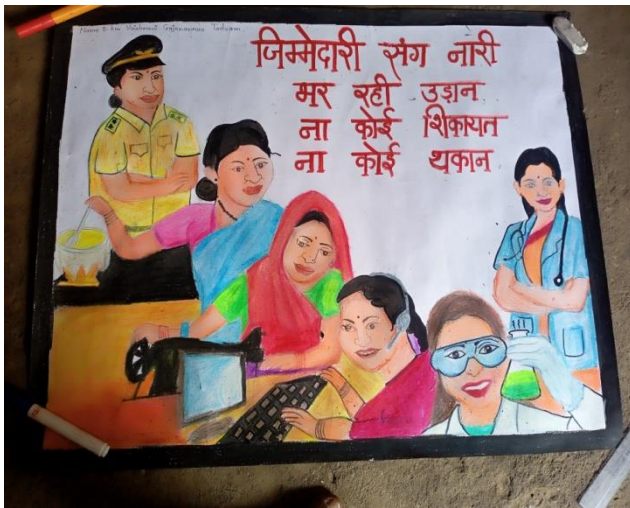 जिम्मेदारी संग नारी
भर रही उड़ान
ना कोई शिकायत
ना कोई थकान